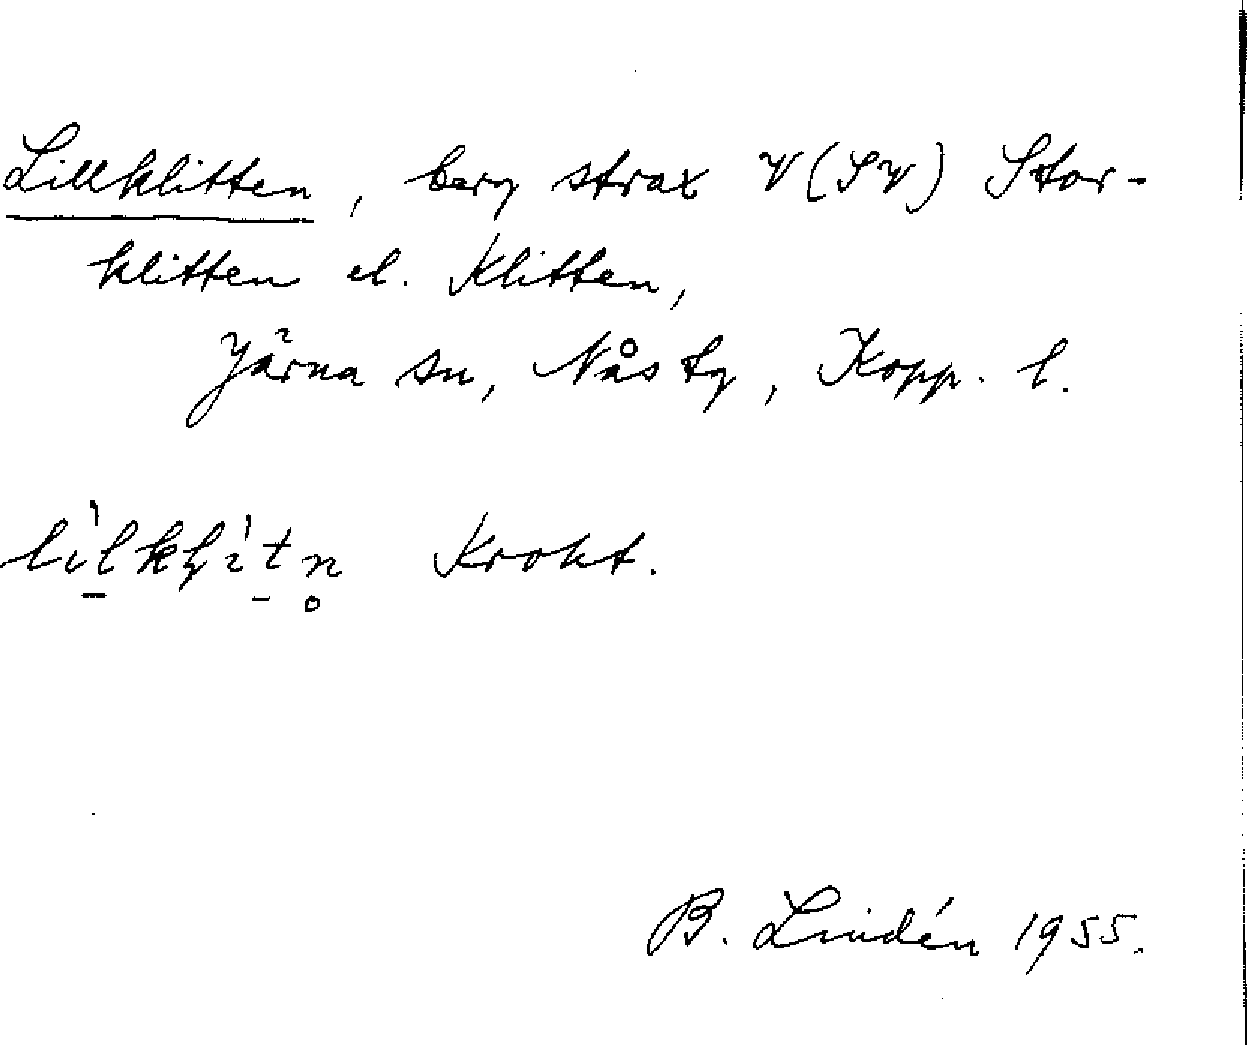 Lillklitten, berg strax V (SV) Stor-
klitten el. Klitten,
Järna sn, Nås tg, Kopp. l.
Krokt.
B. Lindén 1955.